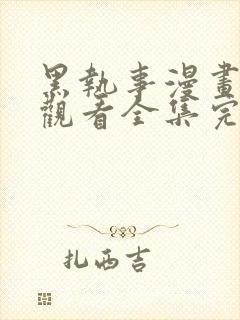 黑執事漫畫
觀看全集完
扎西吉